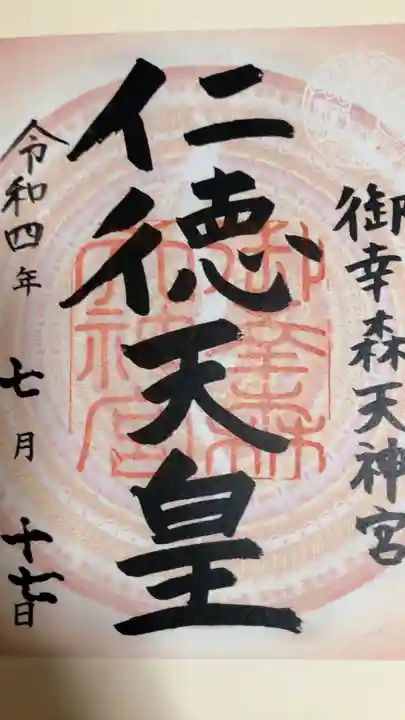 御幸森天神宮
仁徳天皇
御幸森
天神宮
令和四年
七月
十七日